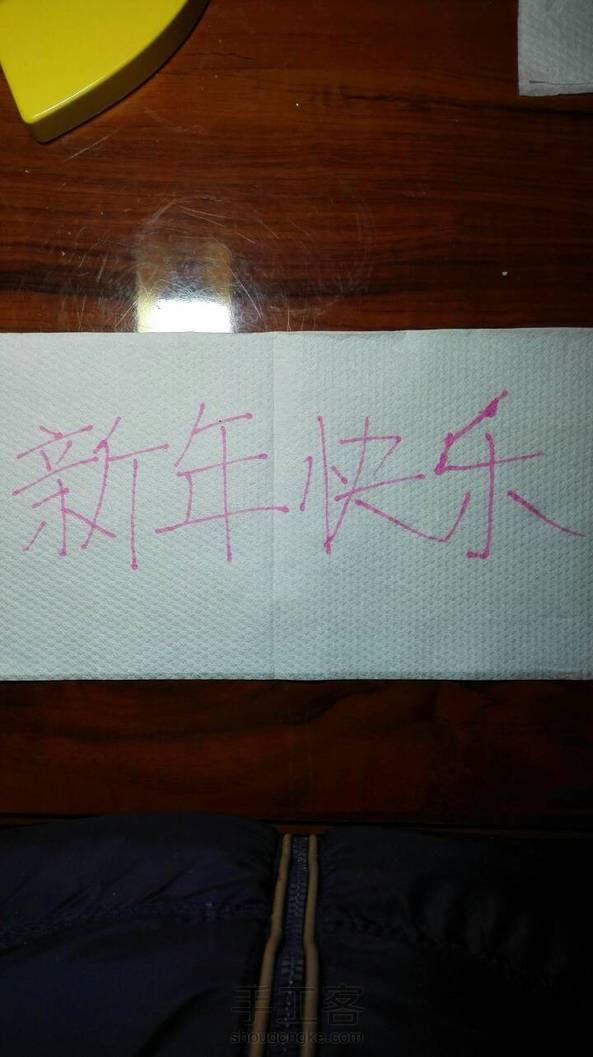 新年快乐
手工客
shougongke.com